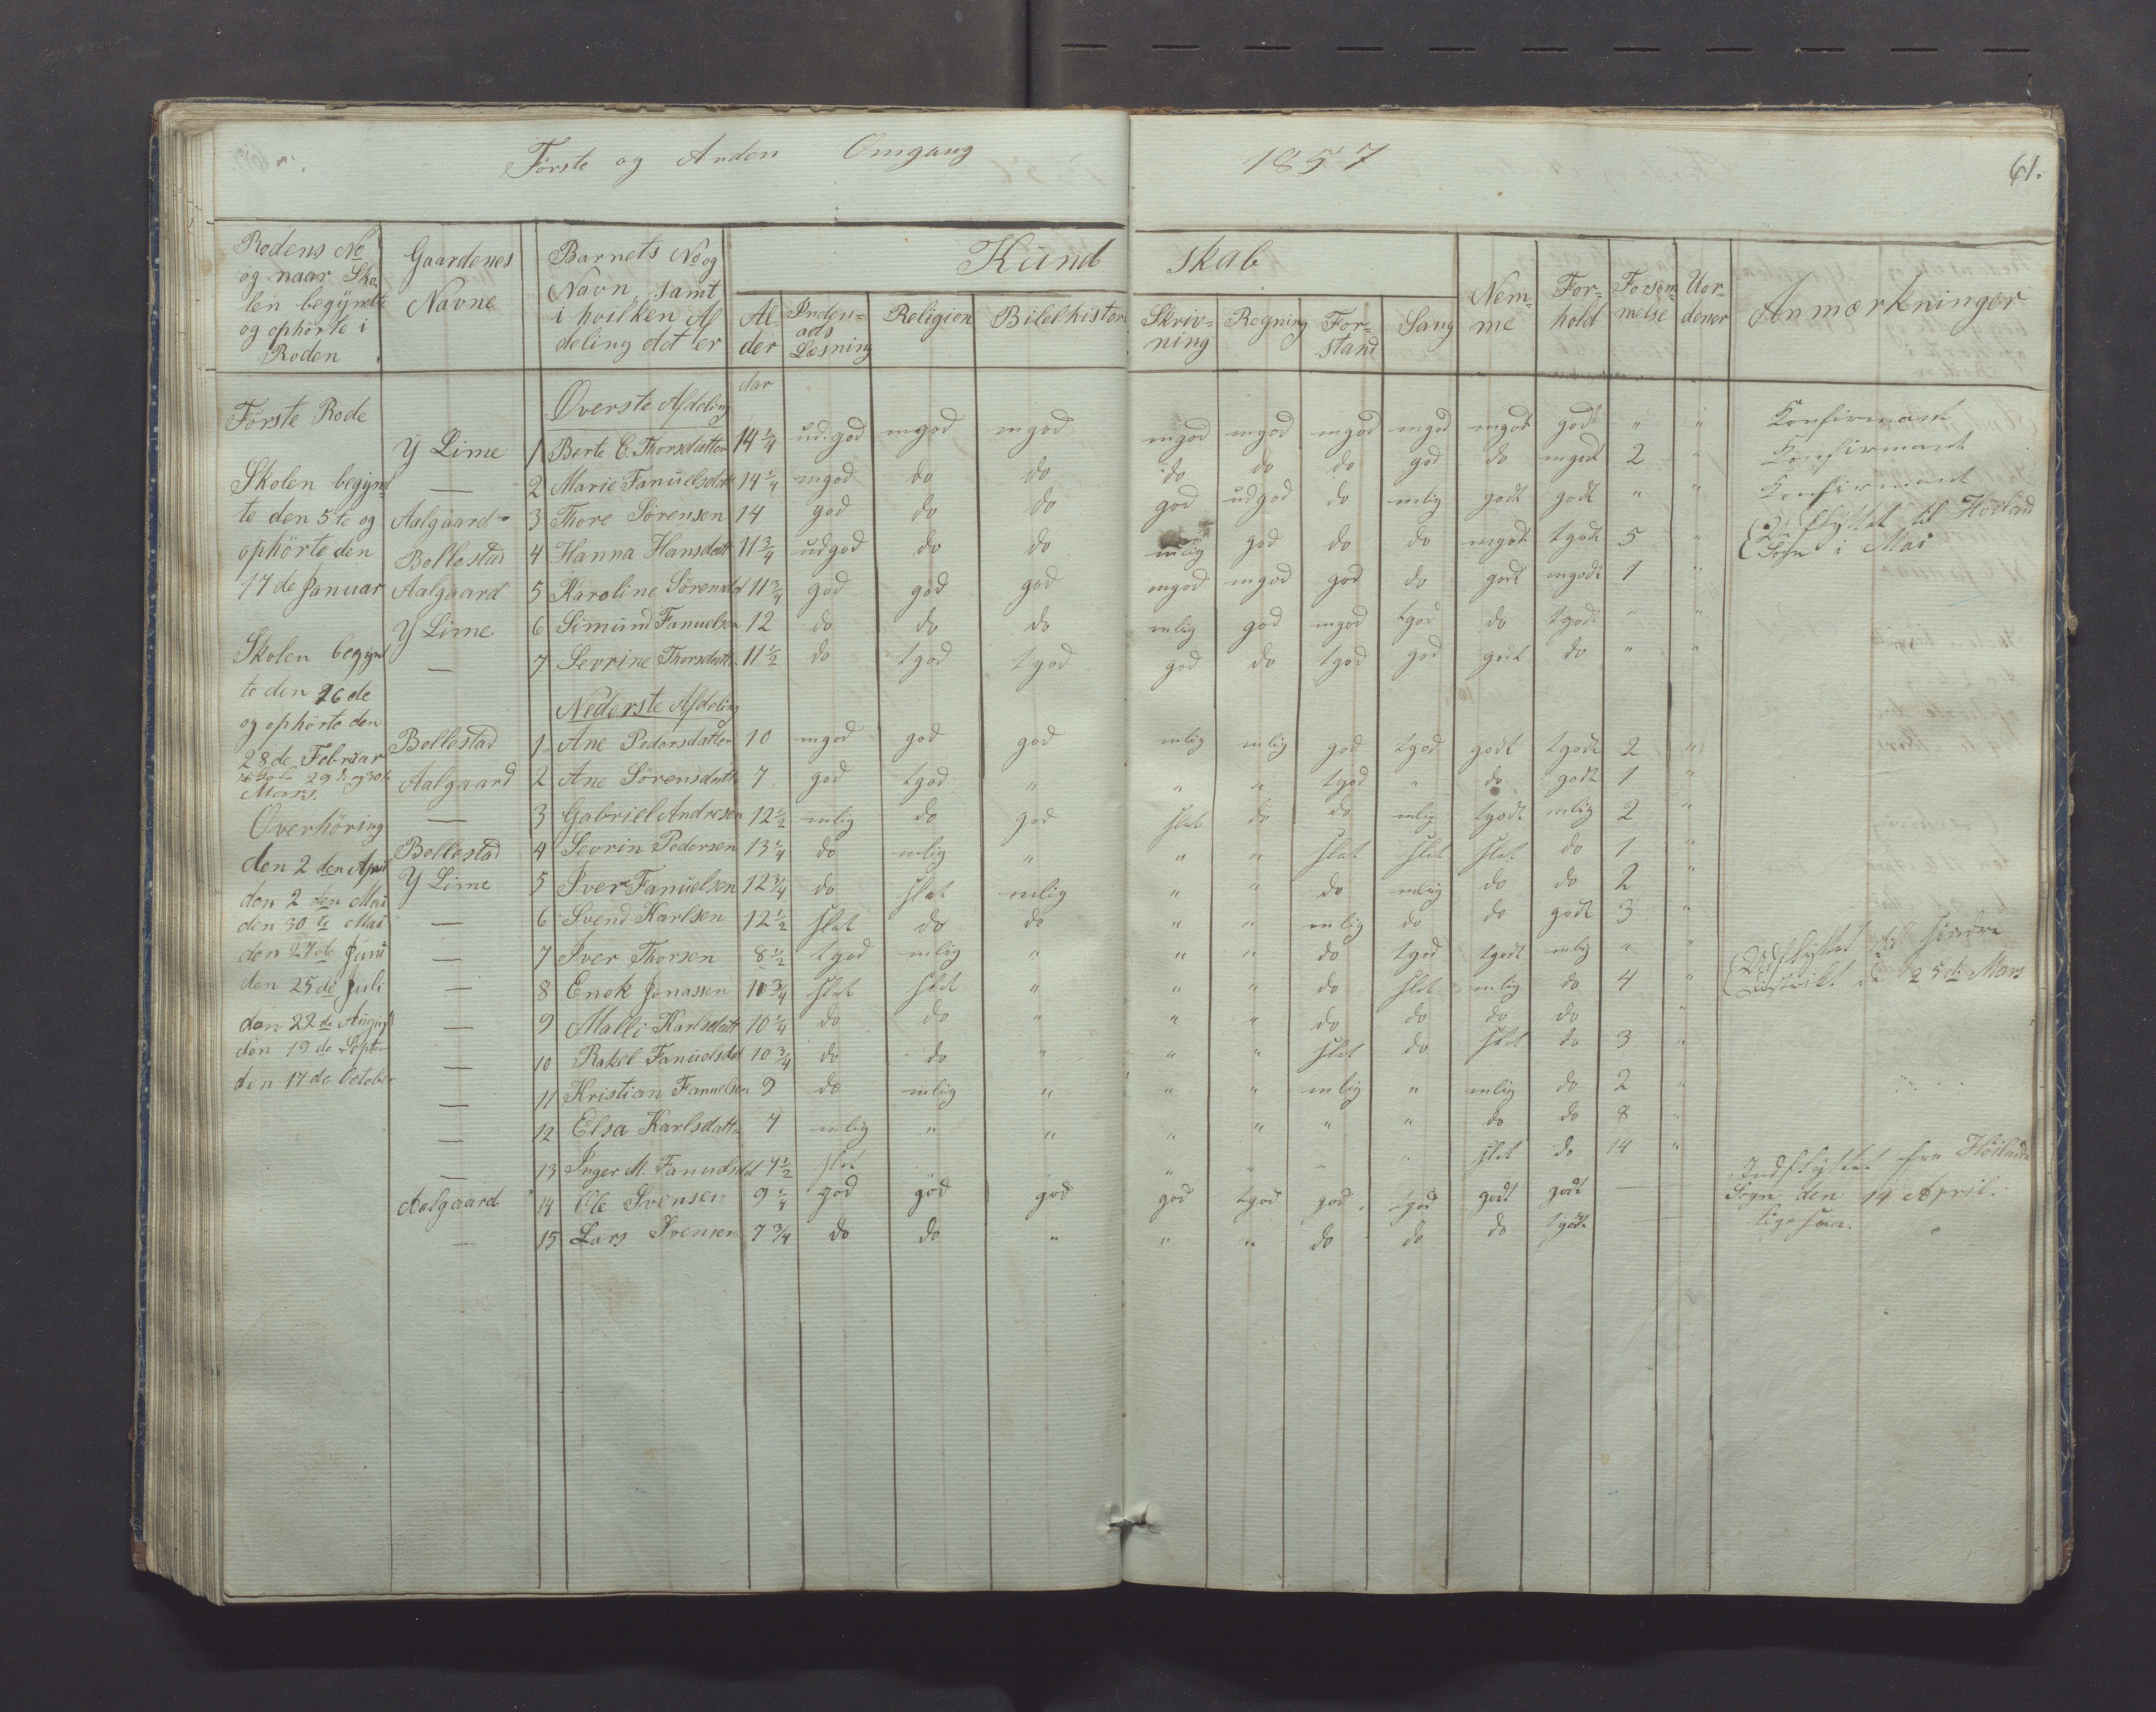 Förste og Anden Omgang 1857 61.
Rodens No og naar Skolen begyndte og ophörte i Roden | Gaardenes Navne | Barnets No og Navn samt i hvilken Afdeling det er | Kundskab | Nemme | Forhold | Forsömmelse | Uordener | Anmærkninger
Alder | Indenads Læsning | Religion | Bibelhistori | Skrivning | Regning | Forstand | Sang
Aar
Förste Rode
Skolen begyndte den 5te og
ophörte den
17de Januar
Skolen begyndte den 26de
og ophörte den
28de Februar
29de og 30te
Mars.
Overhöring
den 2den April
den 2den Mai
den 30te Mai
den 27de Juni
den 25de Juli
den 22de August
den 19de Septe
den 17de October
Överste Afdeling
Y Lime 1 Berte E. Thorsdatter 14 1/4 ud.god mgod mgod mgod mgod mgod mgod mgodt godt " " Konfirmant
— 2 Marie Fanuelsdatt 14 1/4 mgod do do do do do god do mgodt 2 " Konfirmant
Aalgaard 3 Thore Sörensen 14 god do do god udgod do mlig godt godt " " Konfirmant
Bollestad 4 Hanna Hansdatt 11 3/4 udgod do do mlig god do do mgodt tgodt 5 " Udflyttet til Höiland
Sogn i Mai
Aalgaard 5 Karoline Sörensdat 11 3/4 god god god mgod mgod god do godt mgodt 1 "
Y Lime 6 Simund Fanuelsen 12 do do do mlig god mgod tgod do tgodt " "
— 7 Sevrine Thorsdatt 11 1/2 do tgod tgod god do tgod god godt do " "
Nederste Afdeling
Bollestad 1 Ane Pedersdatter 10 mgod god god mlig mlig god tgod godt tgodt 2 "
Aalgaard 2 Ane Sörensdatt 7 god tgod " " " tgod " do godt 1 "
— 3 Gabriel Andresen 12 1/2 mlig do god slet do do mlig tgodt mlig 2 "
Bollestad 4 Sevrin Pedersen 13 1/4 do mlig " " " slet slet slet do 1 "
Y Lime 5 Iver Fanuelsen 12 3/4 do slet mlig " " do mlig do do 2 "
— 6 Svend Karlsen 12 1/2 slet do do " " mlig do do godt 3 "
— 7 Iver Thorsen 8 1/2 tgod mlig " " " do tgod tgodt mlig " " Udflyttet til söndre
— 8 Enok Jonassen 10 3/4 slet slet " " " do slet mlig do 4 " Distrikt d 25de Mars
— 9 Malli Karlsdatt 10 1/4 do do " " " do do do do "
— 10 Rakel Fanuelsdat 10 3/4 do do " " " slet do slet do 3 "
— 11 Kristian Fanuelsen 9 do mlig " " " mlig " mlig do 2 "
— 12 Elsa Karlsdatte 7 mlig " " " " " " do do 8 "
— 13 Inger M. Fanuelsdat 7 1/2 slet " " " " " slet do 14 "
Aalgaard 14 Ole Svensen 9 1/4 god god god god tgod god tgod godt godt — Indflyttet fra Höilands
Sogn den 14 April.
— 15 Lars Svensen 7 3/4 do do " " " do do do tgodt — ligesaa.